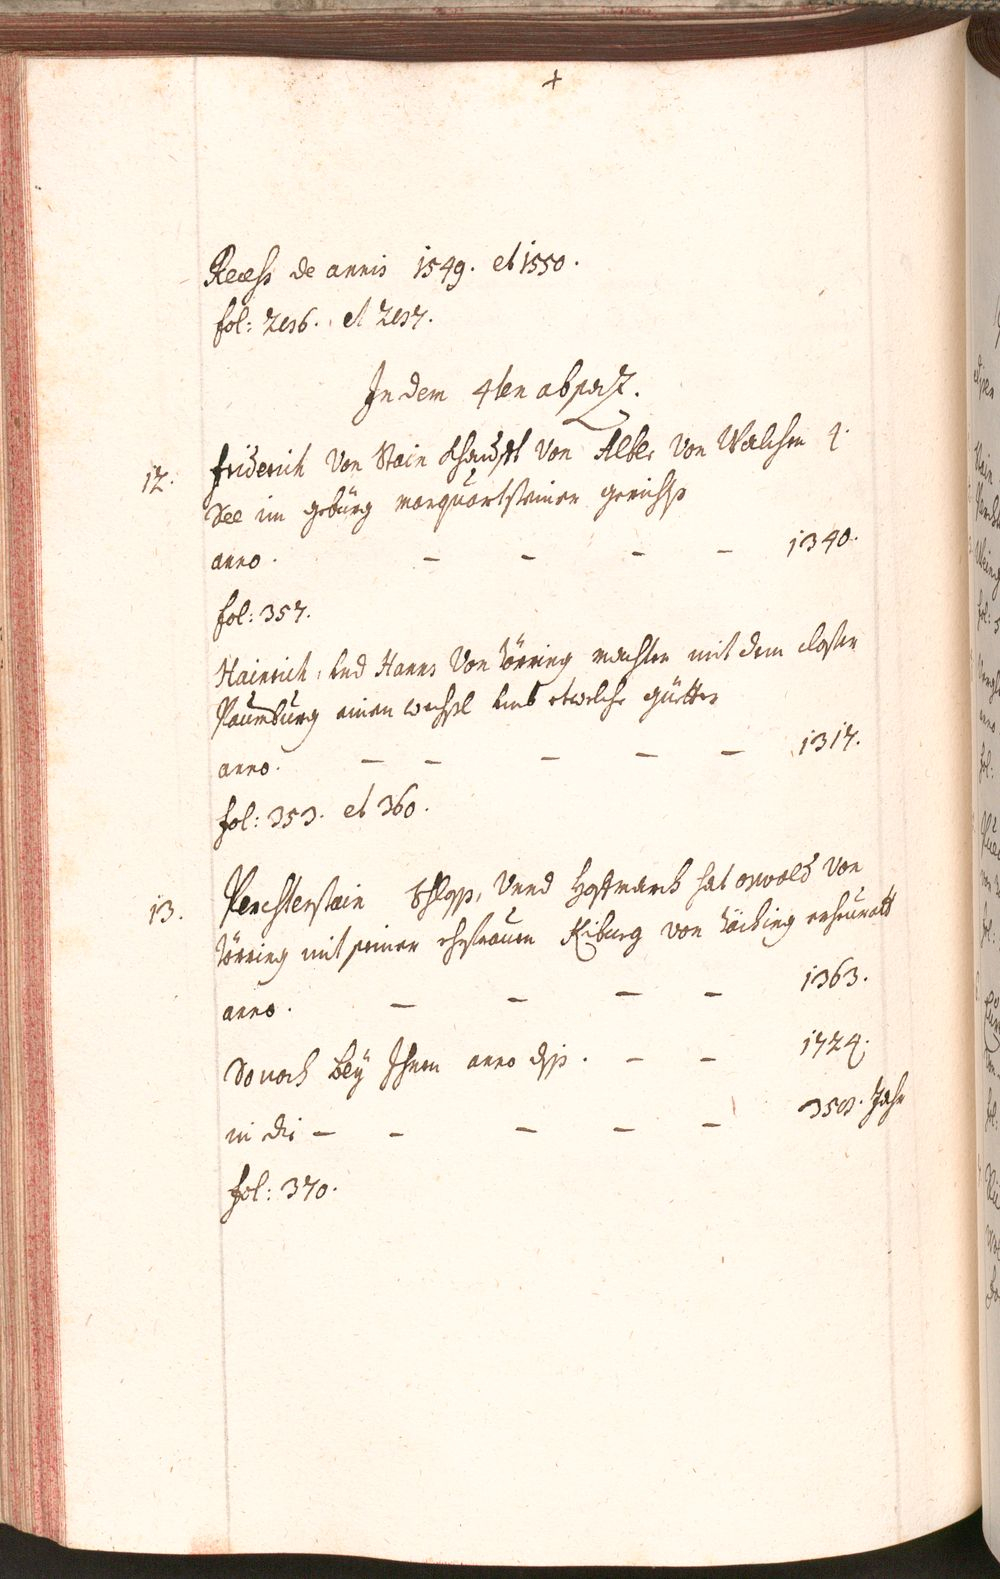 +
Recess de annis 1549. et 1550.
fol: 2656. et 2657.
In dem 4ten absaz.
12. Friderich von Stain khaufft von Alber von Walchen 4.
See im gebürg marquartstainer gerichts
anno. – – – – 1340.
fol: 357.
Hainrich, und Hanns von Törring machten mit dem closter
Paumburg einen wechsl umb etweliche güetter
anno. – – – – – 1317.
fol: 353. et 360.
13. Perchtenstain Schloss, Unnd Hoffmarch hat oswald von
Törring mit seiner ehefrauen von erheuratt
anno. – – – – 1363.
So noch bey Ihnen anno diss. – – 1724.
in die – – – – – Jahr
fol: 370.